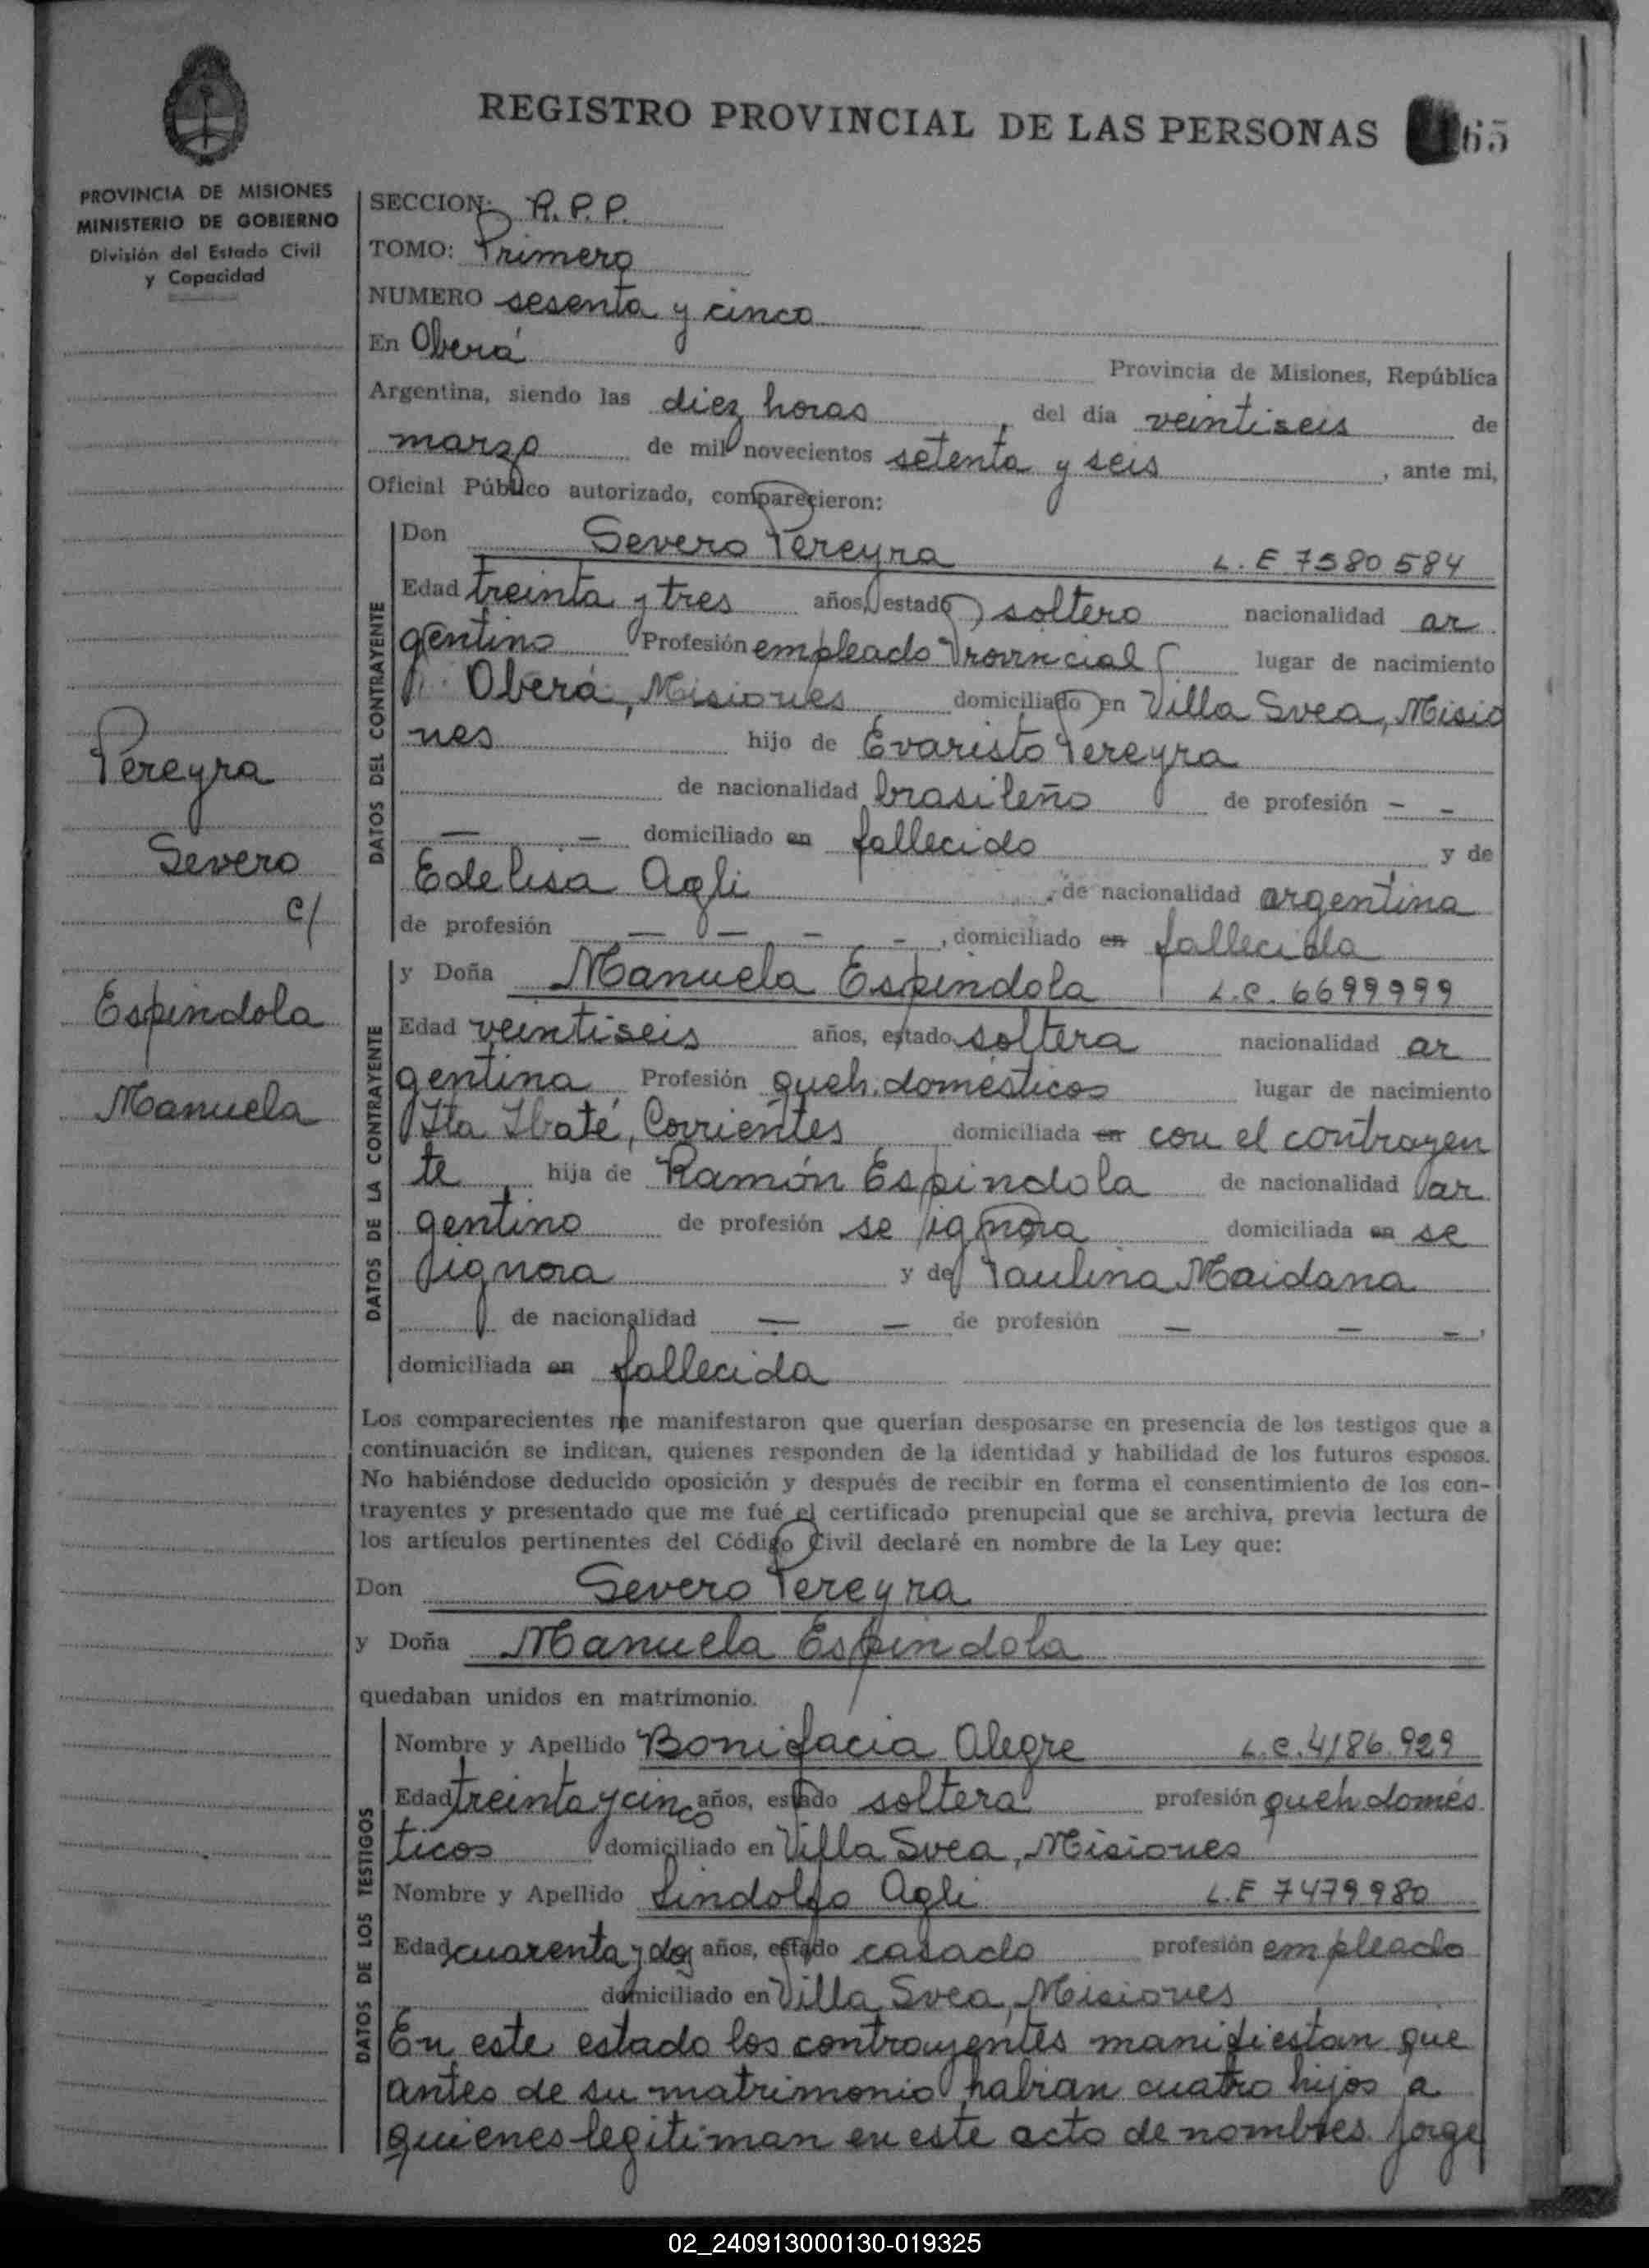 REGISTRO PROVINCIAL DE LAS PERSONAS 65
PROVINCIA DE MISIONES
MINISTERIO DE GOBIERNO
División del Estado Civil
y Capacidad
Pereyra
Severo
c/
Espindola
Manuela
SECCION: R.P.P.
TOMO: Primero
NUMERO sesenta y cinco
En Oberá Provincia de Misiones, República
Argentina, siendo las diez horas, del día veintiseis de
marzo de mil novecientos setenta y seis, ante mi,
Oficial Público autorizado, comparecieron:
DATOS DEL CONTRAYENTE
Don Severo Pereyra L.E 7580584
Edad treinta y tres años, estado soltero nacionalidad ar
gentino Profesión empleado Provincial lugar de nacimiento
Oberá, Misiones domiciliado en Villa Svea, Misio
nes hijo de Evaristo Pereyra
de nacionalidad brasileño de profesión - -
— - domiciliado en fallecido y de
Edelisa Agli, de nacionalidad argentina
de profesión — — - -, domiciliado en fallecida
DATOS DE LA CONTRAYENTE
y Doña Manuela Espindola L.C. 6699999
Edad veintiseis años, estado soltera nacionalidad ar
gentina Profesión queh. domésticos lugar de nacimiento
Ita Ibaté, Corrientes domiciliada en con el contrayen
te, hija de Ramón Espindola de nacionalidad ar
gentino de profesión se ignora domiciliada en se
ignora y de Paulina Maidana
de nacionalidad — - de profesión — - -,
domiciliada en fallecida
Los comparecientes me manifestaron que querían desposarse en presencia de los testigos que a
continuación se indican, quienes responden de la identidad y habilidad de los futuros esposos.
No habiéndose deducido oposición y después de recibir en forma el consentimiento de los con-
trayentes y presentado que me fué el certificado prenupcial que se archiva, previa lectura de
los artículos pertinentes del Código Civil declaré en nombre de la Ley que:
Don Severo Pereyra
y Doña Manuela Espindola
quedaban unidos en matrimonio.
DATOS DE LOS TESTIGOS
Nombre y Apellido Bonifacia Alegre L.C. 4186.929
Edad treinta y cinco años, estado soltera profesión queh domés
ticos domiciliado en Villa Svea, Misiones
Nombre y Apellido Lindolfo Agli L.E 7479980
Edad cuarenta y dos años, estado casado profesión empleado
domiciliado en Villa Svea, Misiones
En este estado los contrayentes manifiestan que
antes de su matrimonio habian cuatro hijos a
quienes legitiman en este acto de nombres Jorge
02_240913000130-019325